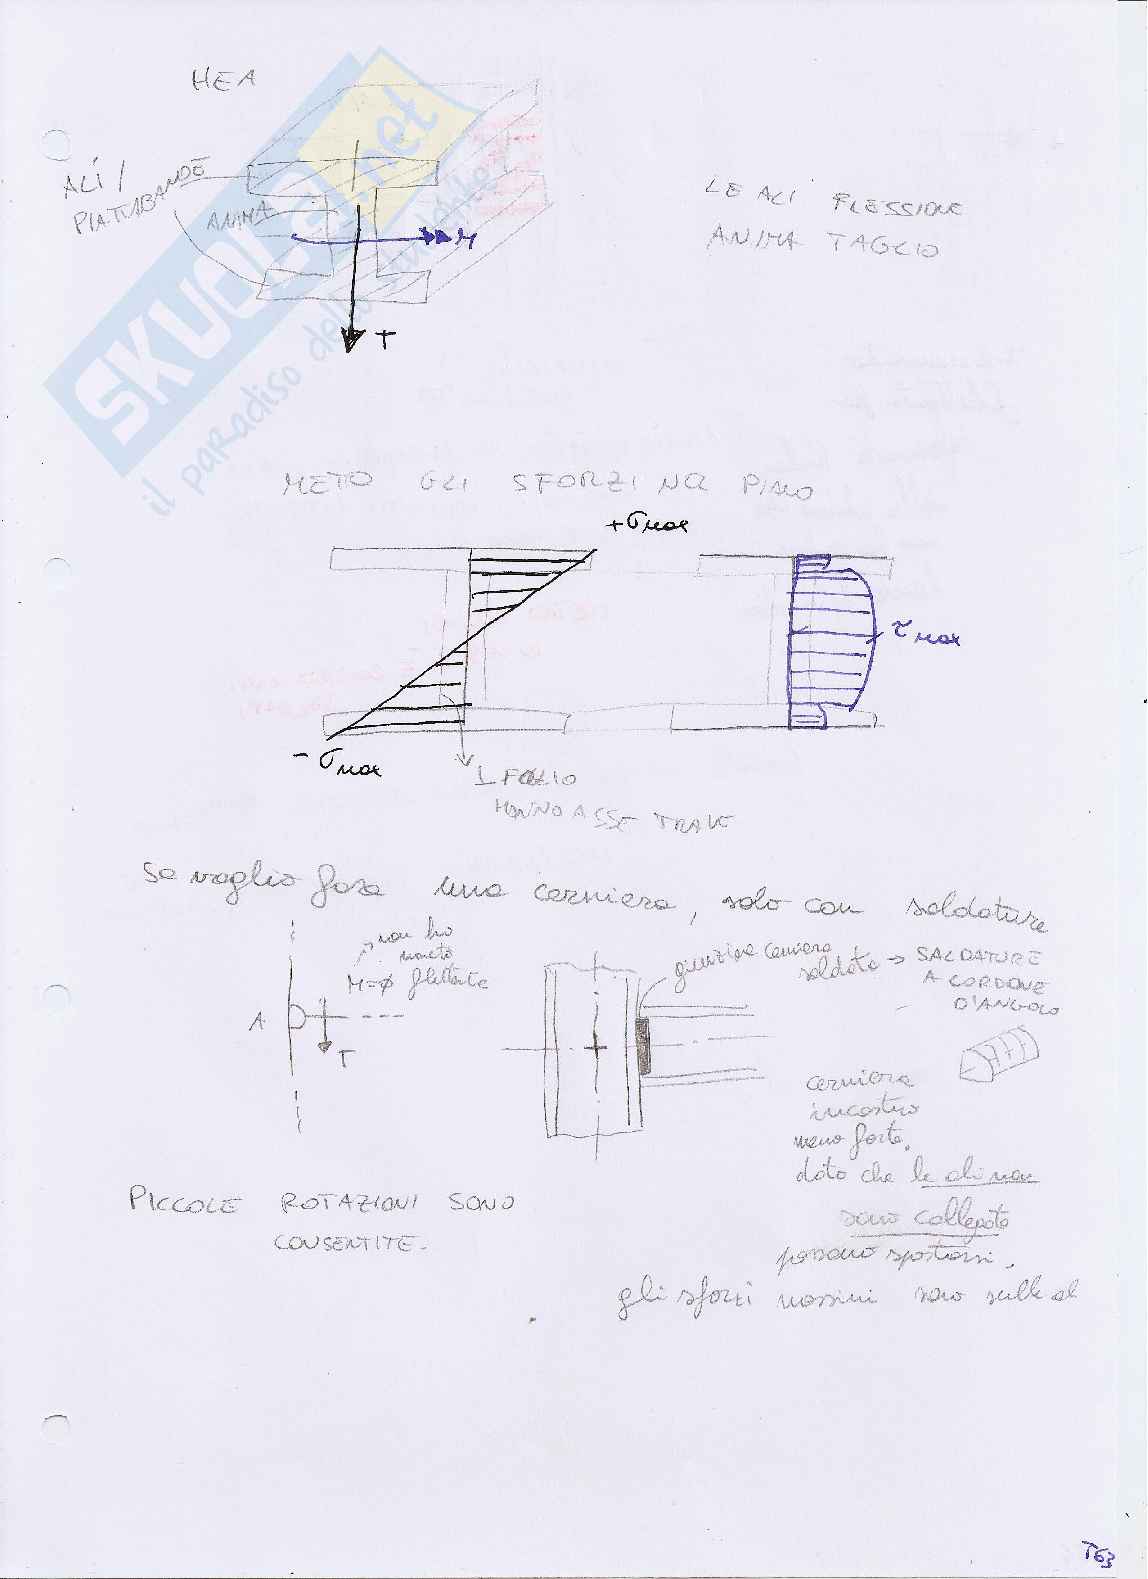 HEA
ALI /
PIATTABANDE
ANIMA
M
T
LE ALI FLESSIONE
ANIMA TAGLIO
SKUOLA.net
il paradiso dello studente
METO GLI SFORZI NEL PIANO
+σmax
τmax
-σmax
⊥ FOGLIO
HANNO ASSE TRAVE
Se voglio fare una cerniera, solo con saldature
non ho
momento
M=ϕ flettente
A
T
giunzione cerniera
saldata → SALDATURE
A CORDONE
D'ANGOLO
cerniera
incastro
meno forte.
dato che le ali non
sono collegate
possono spostarsi.
gli sforzi massimi sono sulle al
PICCOLE ROTAZIONI SONO
CONSENTITE.
T63